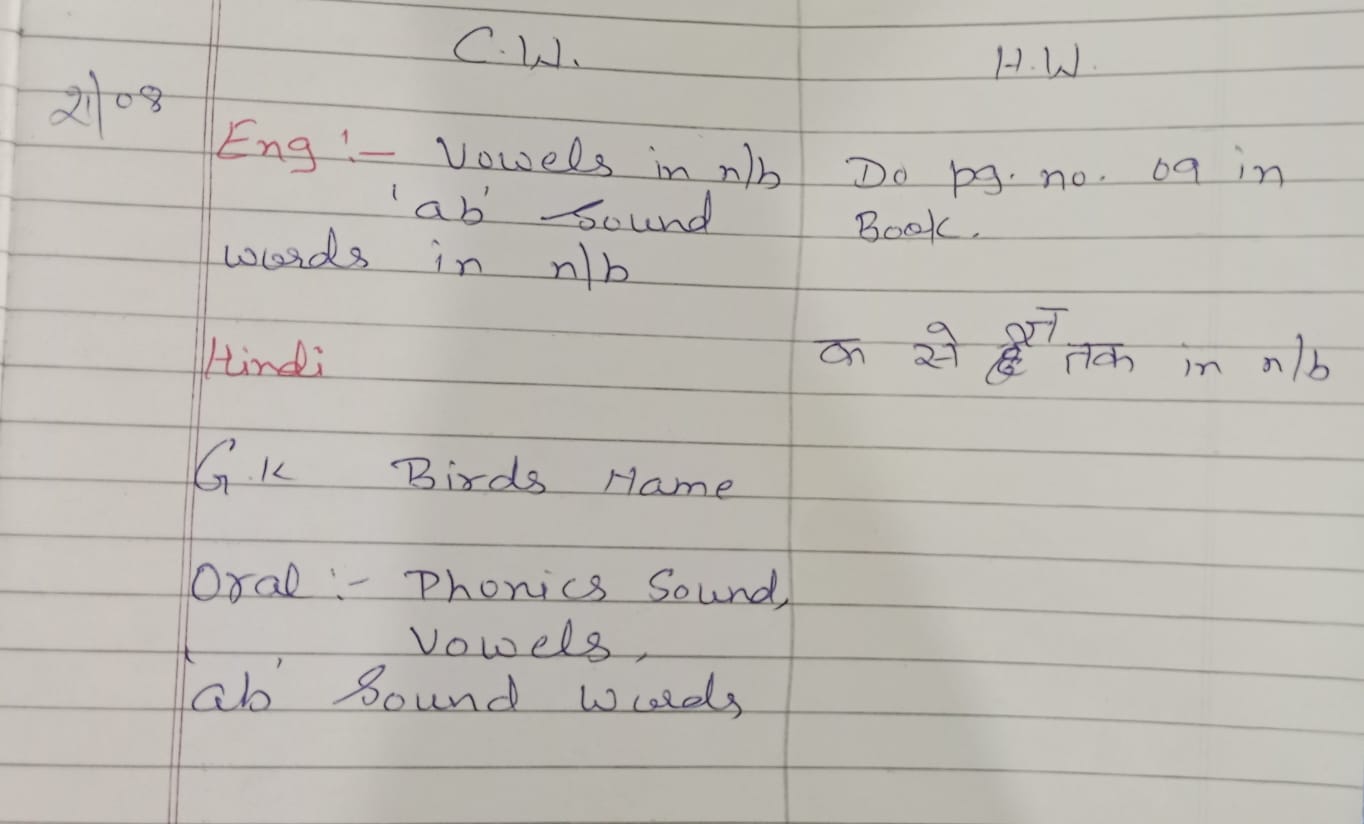 C.W. H.W.
21/08
Eng :- Vowels in n/b Do pg. no. 09 in
'ab' Sound Book.
words in n/b
Hindi क से ज्ञ तक in n/b
G.K Birds Name
Oral :- Phonics Sound,
Vowels,
'ab' Sound Words